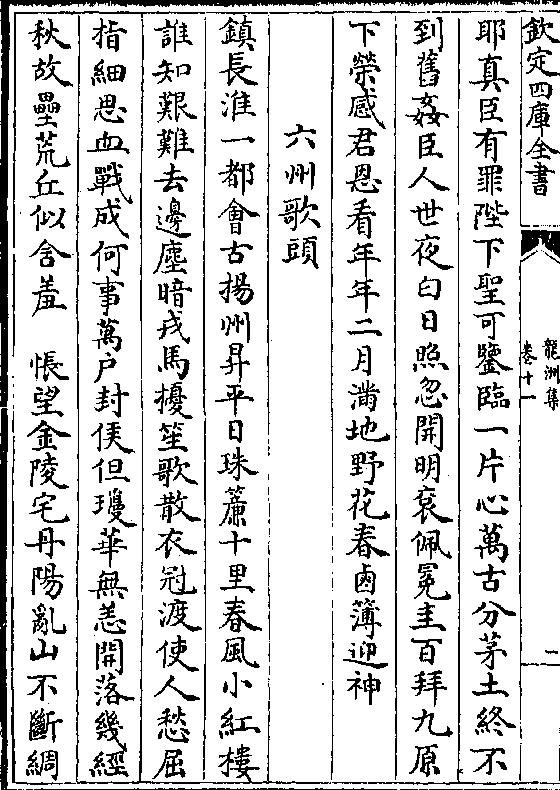 欽定四庫全書
龍洲集
卷十一
一
耶真臣有罪陛下聖可鑒臨一片心萬古分茅土終不
到舊姦臣人世夜白日照忽開明衮佩冕圭百拜九原
下榮感君恩看年年二月滿地野花春鹵簿迎神
六州歌頭
鎮長淮一都會古揚州昇平日珠簾十里春風小紅樓
誰知艱難去邊塵暗戎馬擾笙歌散衣冠渡使人愁屈
指細思血戰成何事萬户封侯但瓊華無恙開落幾經
秋故壘荒丘似含羞 悵望金陵宅丹陽亂山不斷綢